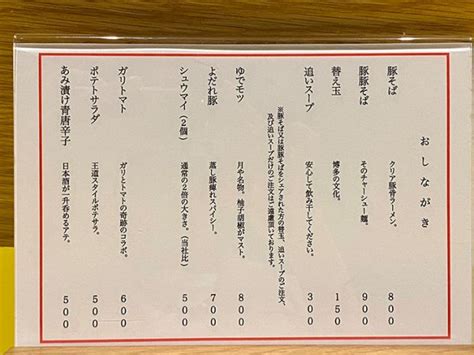 おしながき
豚そば　クリア豚骨ラーメン。　８００
豚豚そば　そのチャーシュー麺。　９００
替え玉　博多の文化。　１５０
追いスープ　安心して飲み干してください。　３００
※豚そば又は豚豚そばをシェアされた方の替玉、追いスープのご注文、
及び追いスープだけのご注文はご遠慮頂いております。
ゆでモツ　月や名物。柚子胡椒がマスト。　８００
よだれ豚　蒸し豚痺れスパイシー。　７００
シュウマイ（２個）　通常の２倍の大きさ。（当社比）　５００
ガリトマト　ガリとトマトの奇跡のコラボ。　６００
ポテトサラダ　王道スタイルポテサラ。　５００
あみ漬け青唐辛子　日本酒が一升呑めるアテ。　５００